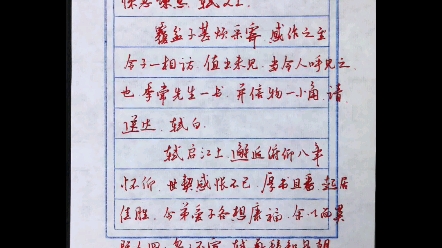 覆盆子甚烦采寄 感作之至
令子一相访 值出未见 当令人呼见之
也 季常先生一书 并信物一小角 请
送达 轼白
轼启江上 邂逅俯仰八年
怀仰 世契感怅不已 辱书且审 起居
佳胜 令弟爱子各想康福 余以面莫